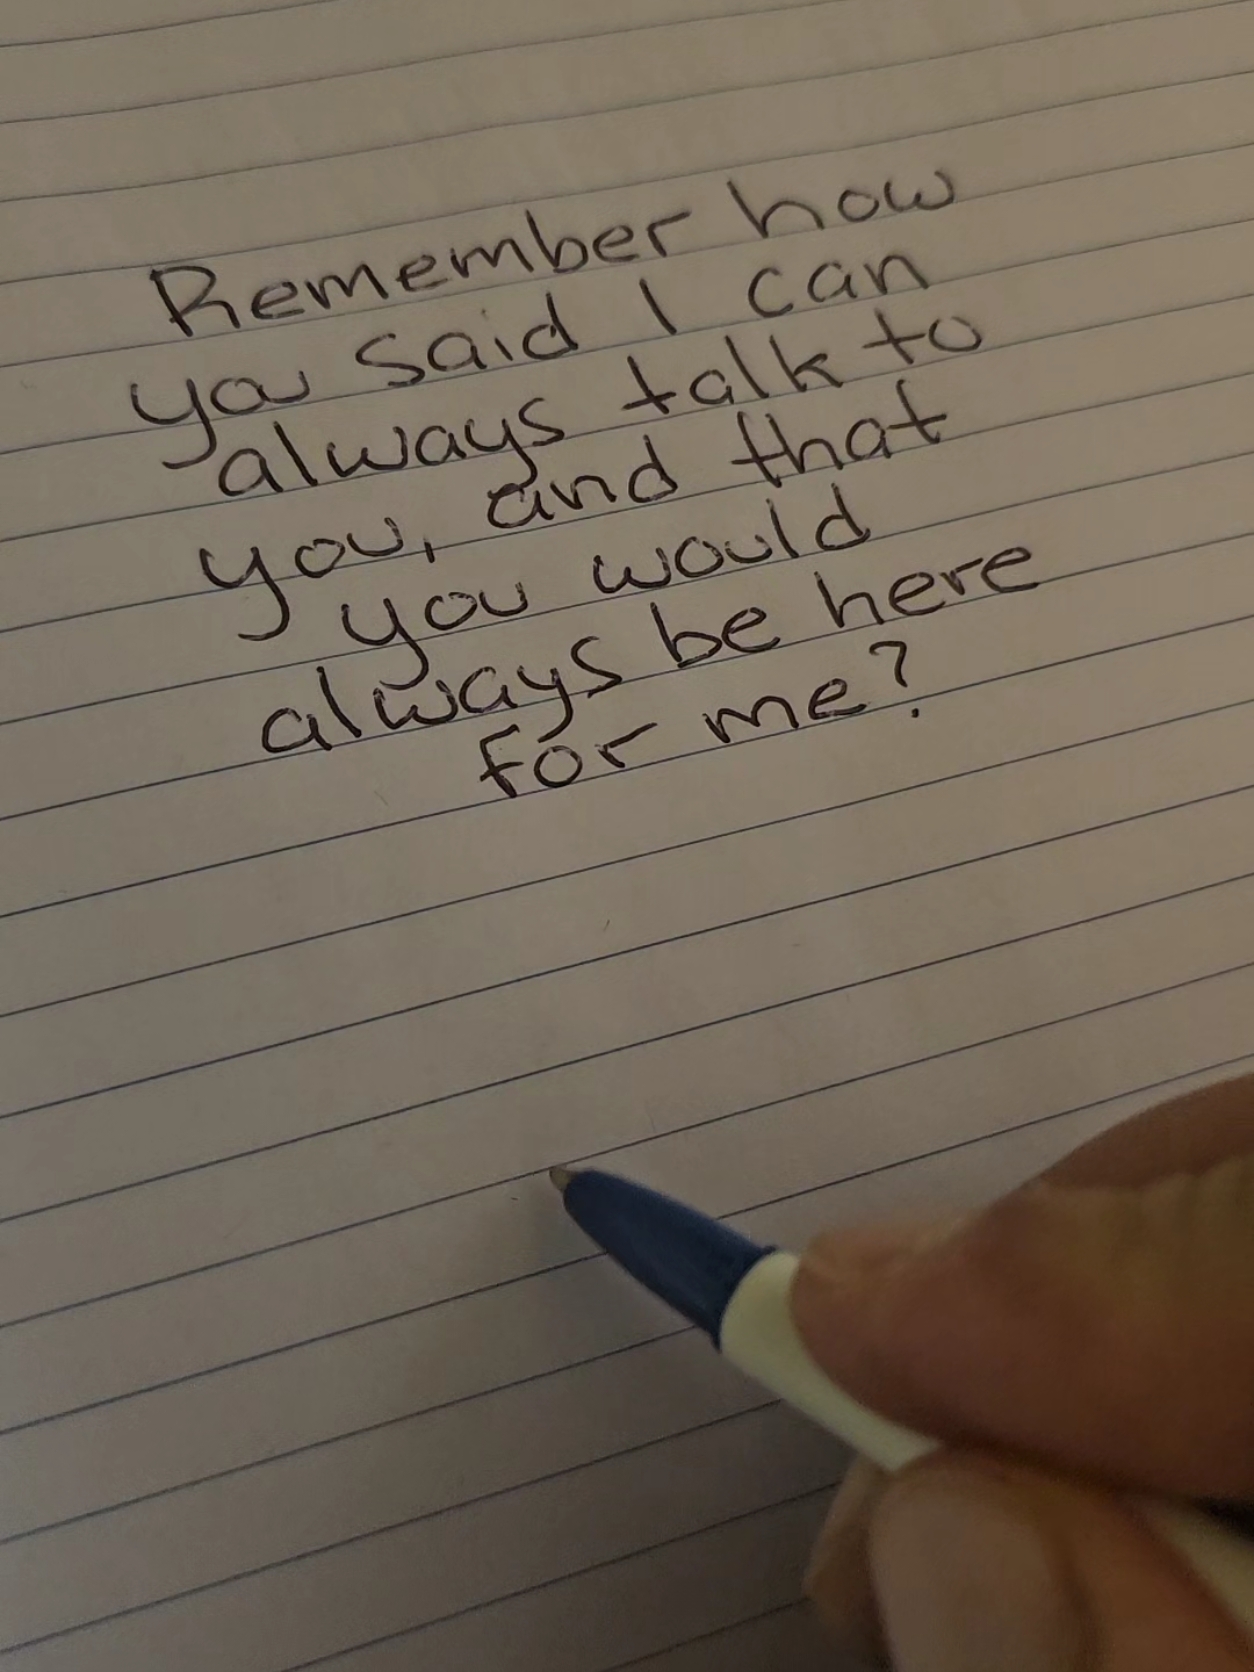 Remember how
you said I can
always talk to
you, and that
you would
always be here
for me?